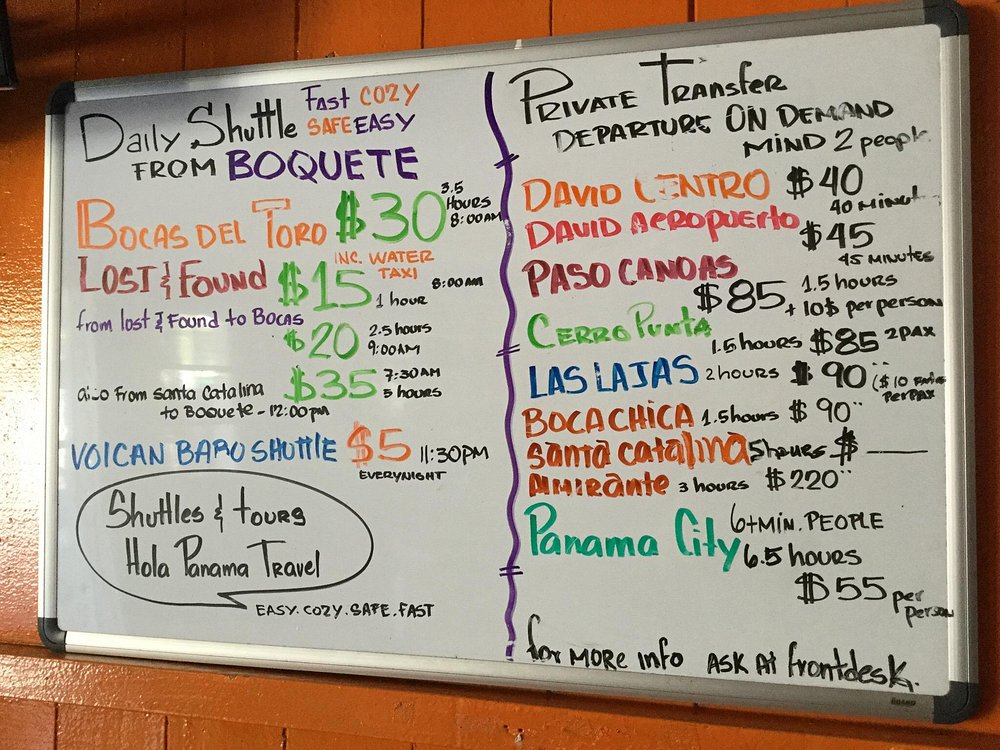 Daily Shuttle Fast COZY
SAFE EASY
FROM BOQUETE
BOCAS DEL TORO $30 3.5 HOURS 8:00AM
INC. WATER TAXI
LOST & FOUND $15 1 hour 8:00AM
from lost & Found to BOCAS
$20 2.5 hours 9:00AM
From Santa Catalina $35 7:30AM
to Boquete - 12:00pm 5 hours
VOLCAN BARO SHUTTLE $5 11:30PM
EVERYNIGHT
Shuttles & tours
Hola Panama Travel
EASY. COZY. SAFE. FAST
PRIVATE TransFer
DEPARTURE ON DEMAND
MIND 2 people
DAVID CENTRO $40
40 MINUT
DAVID AEROPUERTO $45
45 MINUTES
PASO CANOAS
$85 1.5 hours
+ 10$ per person
CERRO PUNTA
1.5 hours $85 2PAX
LAS LAJAS 2 hours $90 " ($10
Per PAX
BOCA CHICA 1.5 hours $90 "
Santa Catalina 5 hours $ ——
Almirante 3 hours $220 "
Panama City 6+MIN. PEOPLE
6.5 hours
$55 per person
for MORE info ASK At frontdesk.